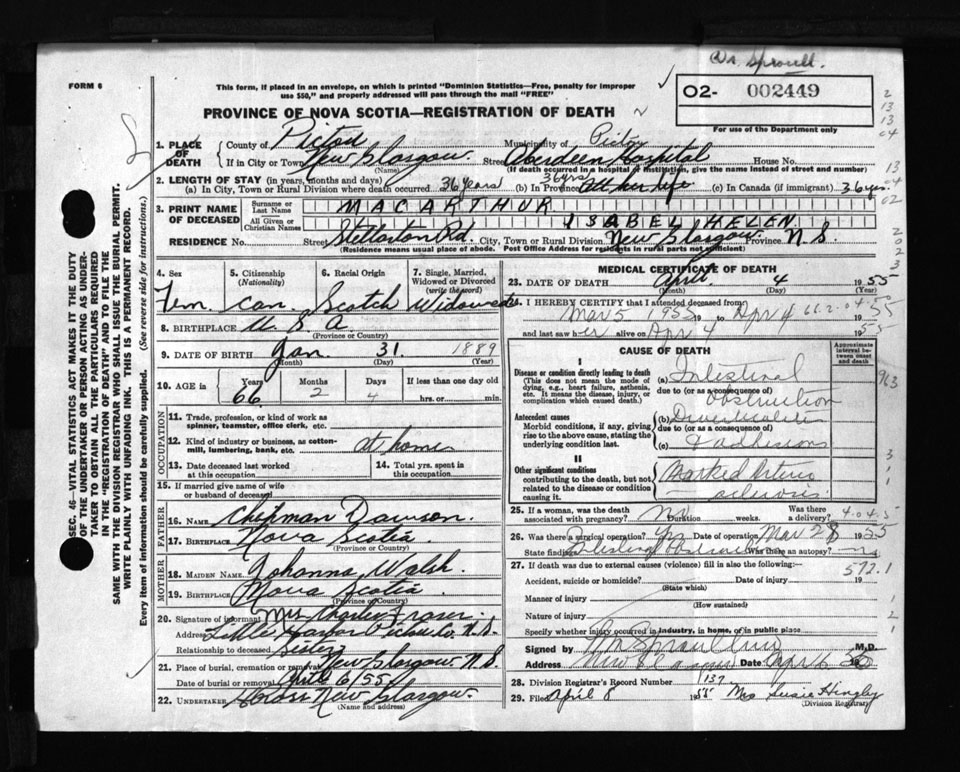 Dr. Sproull.
FORM 6
This form, if placed in an envelope, on which is printed "Dominion Statistics—Free, penalty for improper
use $50," and properly addressed will pass through the mail "FREE"
PROVINCE OF NOVA SCOTIA—REGISTRATION OF DEATH
O2- 002449
For use of the Department only
1. PLACE OF DEATH
County of Pictou Municipality of Pictou
If in City or Town New Glasgow. Street Aberdeen Hospital House No.
(Name) (If death occurred in a hospital or institution, give the name instead of street and number)
2. LENGTH OF STAY (in years, months and days) 36 yrs
(a) In City, Town or Rural Division where death occurred 36 years (b) In Province All her life (c) In Canada (if immigrant) 36 yrs.
3. PRINT NAME OF DECEASED
Surname or Last Name MACARTHUR
All Given or Christian Names ISABEL HELEN
RESIDENCE No. Street Stellarton Rd. City, Town or Rural Division New Glasgow. Province N.S.
(Residence means usual place of abode. Post Office Address for residents in rural parts not sufficient)
4. Sex Fem
5. Citizenship (Nationality) Can
6. Racial Origin Scotch
7. Single, Married, Widowed or Divorced (write the word) Widowed
8. BIRTHPLACE U.S.A.
(Province or Country)
9. DATE OF BIRTH Jan. 31. 1889
(Month) (Day) (Year)
10. AGE in Years Months Days If less than one day old
66 2 4 hrs. or min.
OCCUPATION
11. Trade, profession, or kind of work as
spinner, teamster, office clerk, etc.
12. Kind of industry or business, as cotton-
mill, lumbering, bank, etc. at home
13. Date deceased last worked
at this occupation
14. Total yrs. spent in
this occupation
15. If married give name of wife
or husband of deceased
FATHER
16. NAME Chipman Dawson.
17. BIRTHPLACE Nova Scotia
(Province or Country)
MOTHER
18. MAIDEN NAME Johanna Walsh
19. BIRTHPLACE Nova Scotia
(Province or Country)
20. Signature of informant Mrs Charley Fraser.
Address Little Harbor Pictou Co. N.S.
Relationship to deceased Sister
21. Place of burial, cremation or removal New Glasgow N.S.
Date of burial or removal April 6/55
22. UNDERTAKER New Glasgow.
(Name and address)
MEDICAL CERTIFICATE OF DEATH
23. DATE OF DEATH April 4 1955
(Month) (Day)
24. I HEREBY CERTIFY that I attended deceased from:
Mar 5 1955 to Apr 4 1955
and last saw her alive on Apr 4 1955
CAUSE OF DEATH
Approximate interval between onset and death
I
Disease or condition directly leading to death
(This does not mean the mode of
dying, e.g., heart failure, asthenia,
etc. It means the disease, injury, or
complication which caused death.)
(a) Intestinal
due to (or as a consequence of)
Obstruction
Antecedent causes
Morbid conditions, if any, giving
rise to the above cause, stating the
underlying condition last.
(b) Diverticulitis
due to (or as a consequence of)
(c) & adhesions
II
Other significant conditions
contributing to the death, but not
related to the disease or condition
causing it.
Marked Arterio
—sclerosis
25. If a woman, was the death
associated with pregnancy? no Duration weeks. Was there a delivery?
26. Was there a surgical operation? Yes Date of operation Mar 28 1955
State findings Intestinal Obstruction Was there an autopsy? no
27. If death was due to external causes (violence) fill in also the following:—
572.1
Accident, suicide or homicide? Date of injury 19
(State which)
Manner of injury
(How sustained)
Nature of injury
Specify whether injury occurred in industry, in home, or in public place
Signed by M.D.
Address New Glasgow Date Apr 6
28. Division Registrar's Record Number 137
29. Filed April 8 1955 Mrs Susie Hingley
(Division Registrar)
SEC. 46—VITAL STATISTICS ACT MAKES IT THE DUTY
OF THE UNDERTAKER OR PERSON ACTING AS UNDER-
TAKER TO OBTAIN ALL THE PARTICULARS REQUIRED
IN THE "REGISTRATION OF DEATH" AND TO FILE THE
SAME WITH THE DIVISION REGISTRAR WHO SHALL ISSUE THE BURIAL PERMIT.
WRITE PLAINLY WITH UNFADING INK. THIS IS A PERMANENT RECORD.
Every item of information should be carefully supplied. (See reverse side for instructions.)